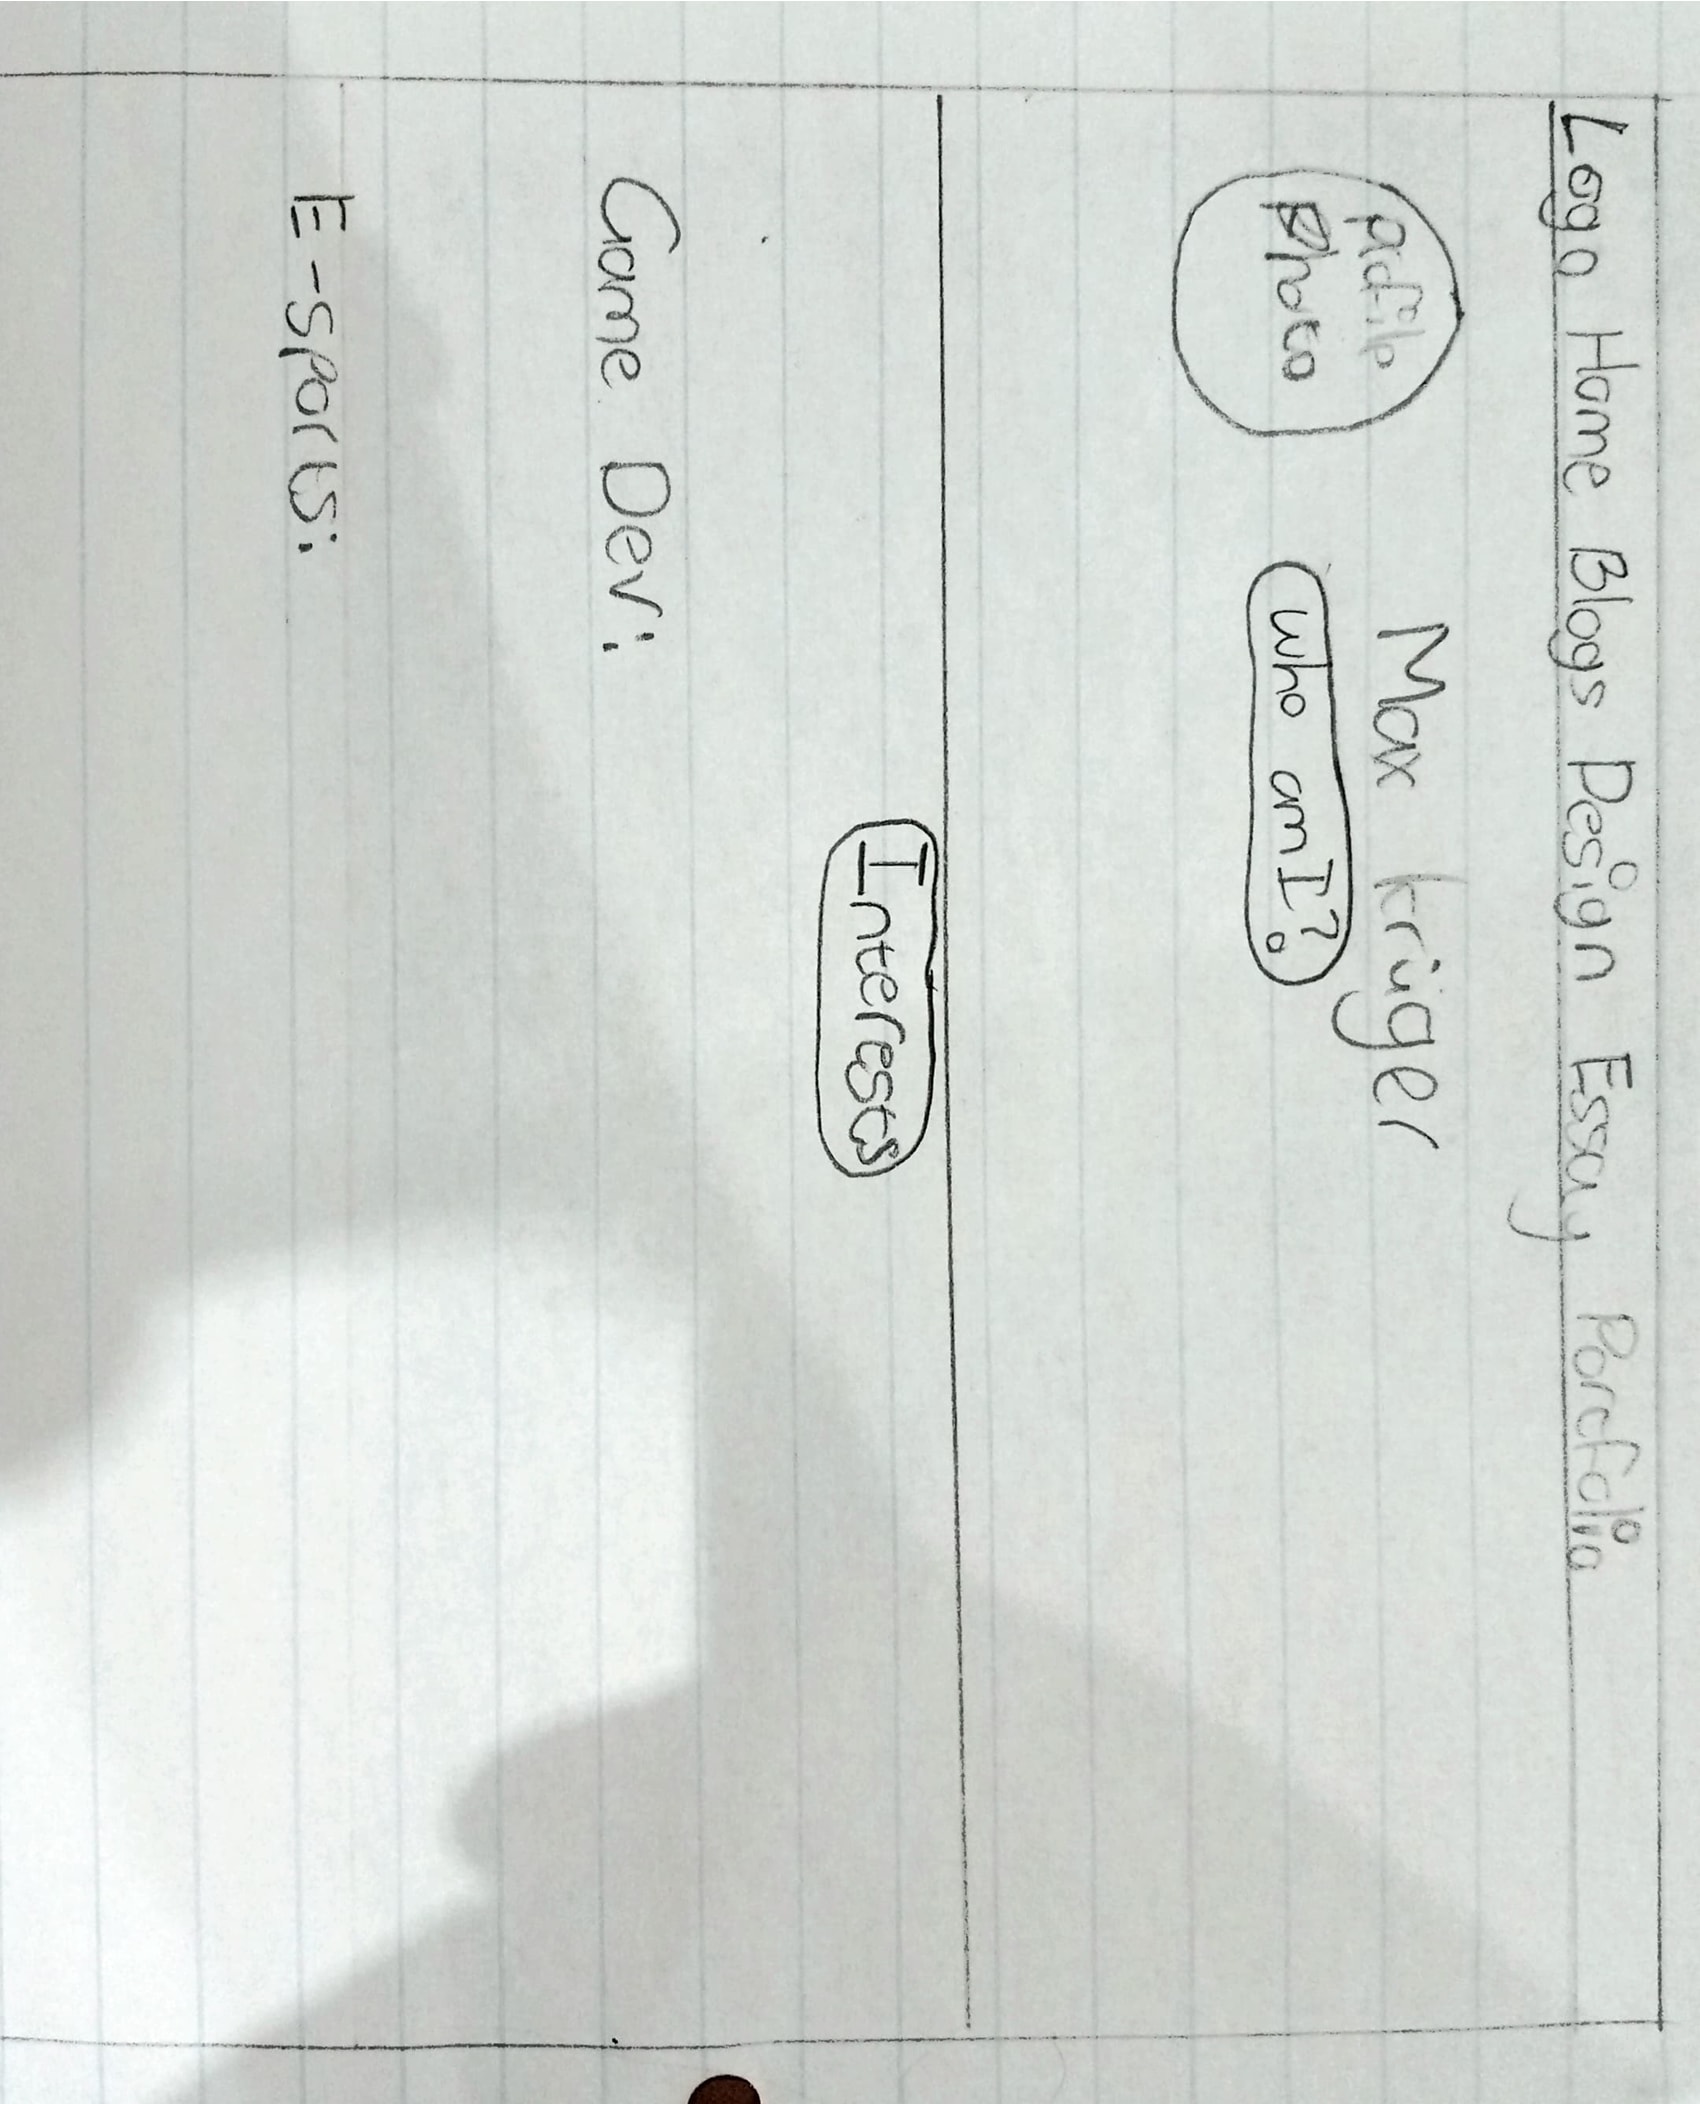 Logo Home Blogs Design Essay Portfolio
Profile
Photo
Max Krüger
who am I?
Interests
Game Dev:
E-sports: